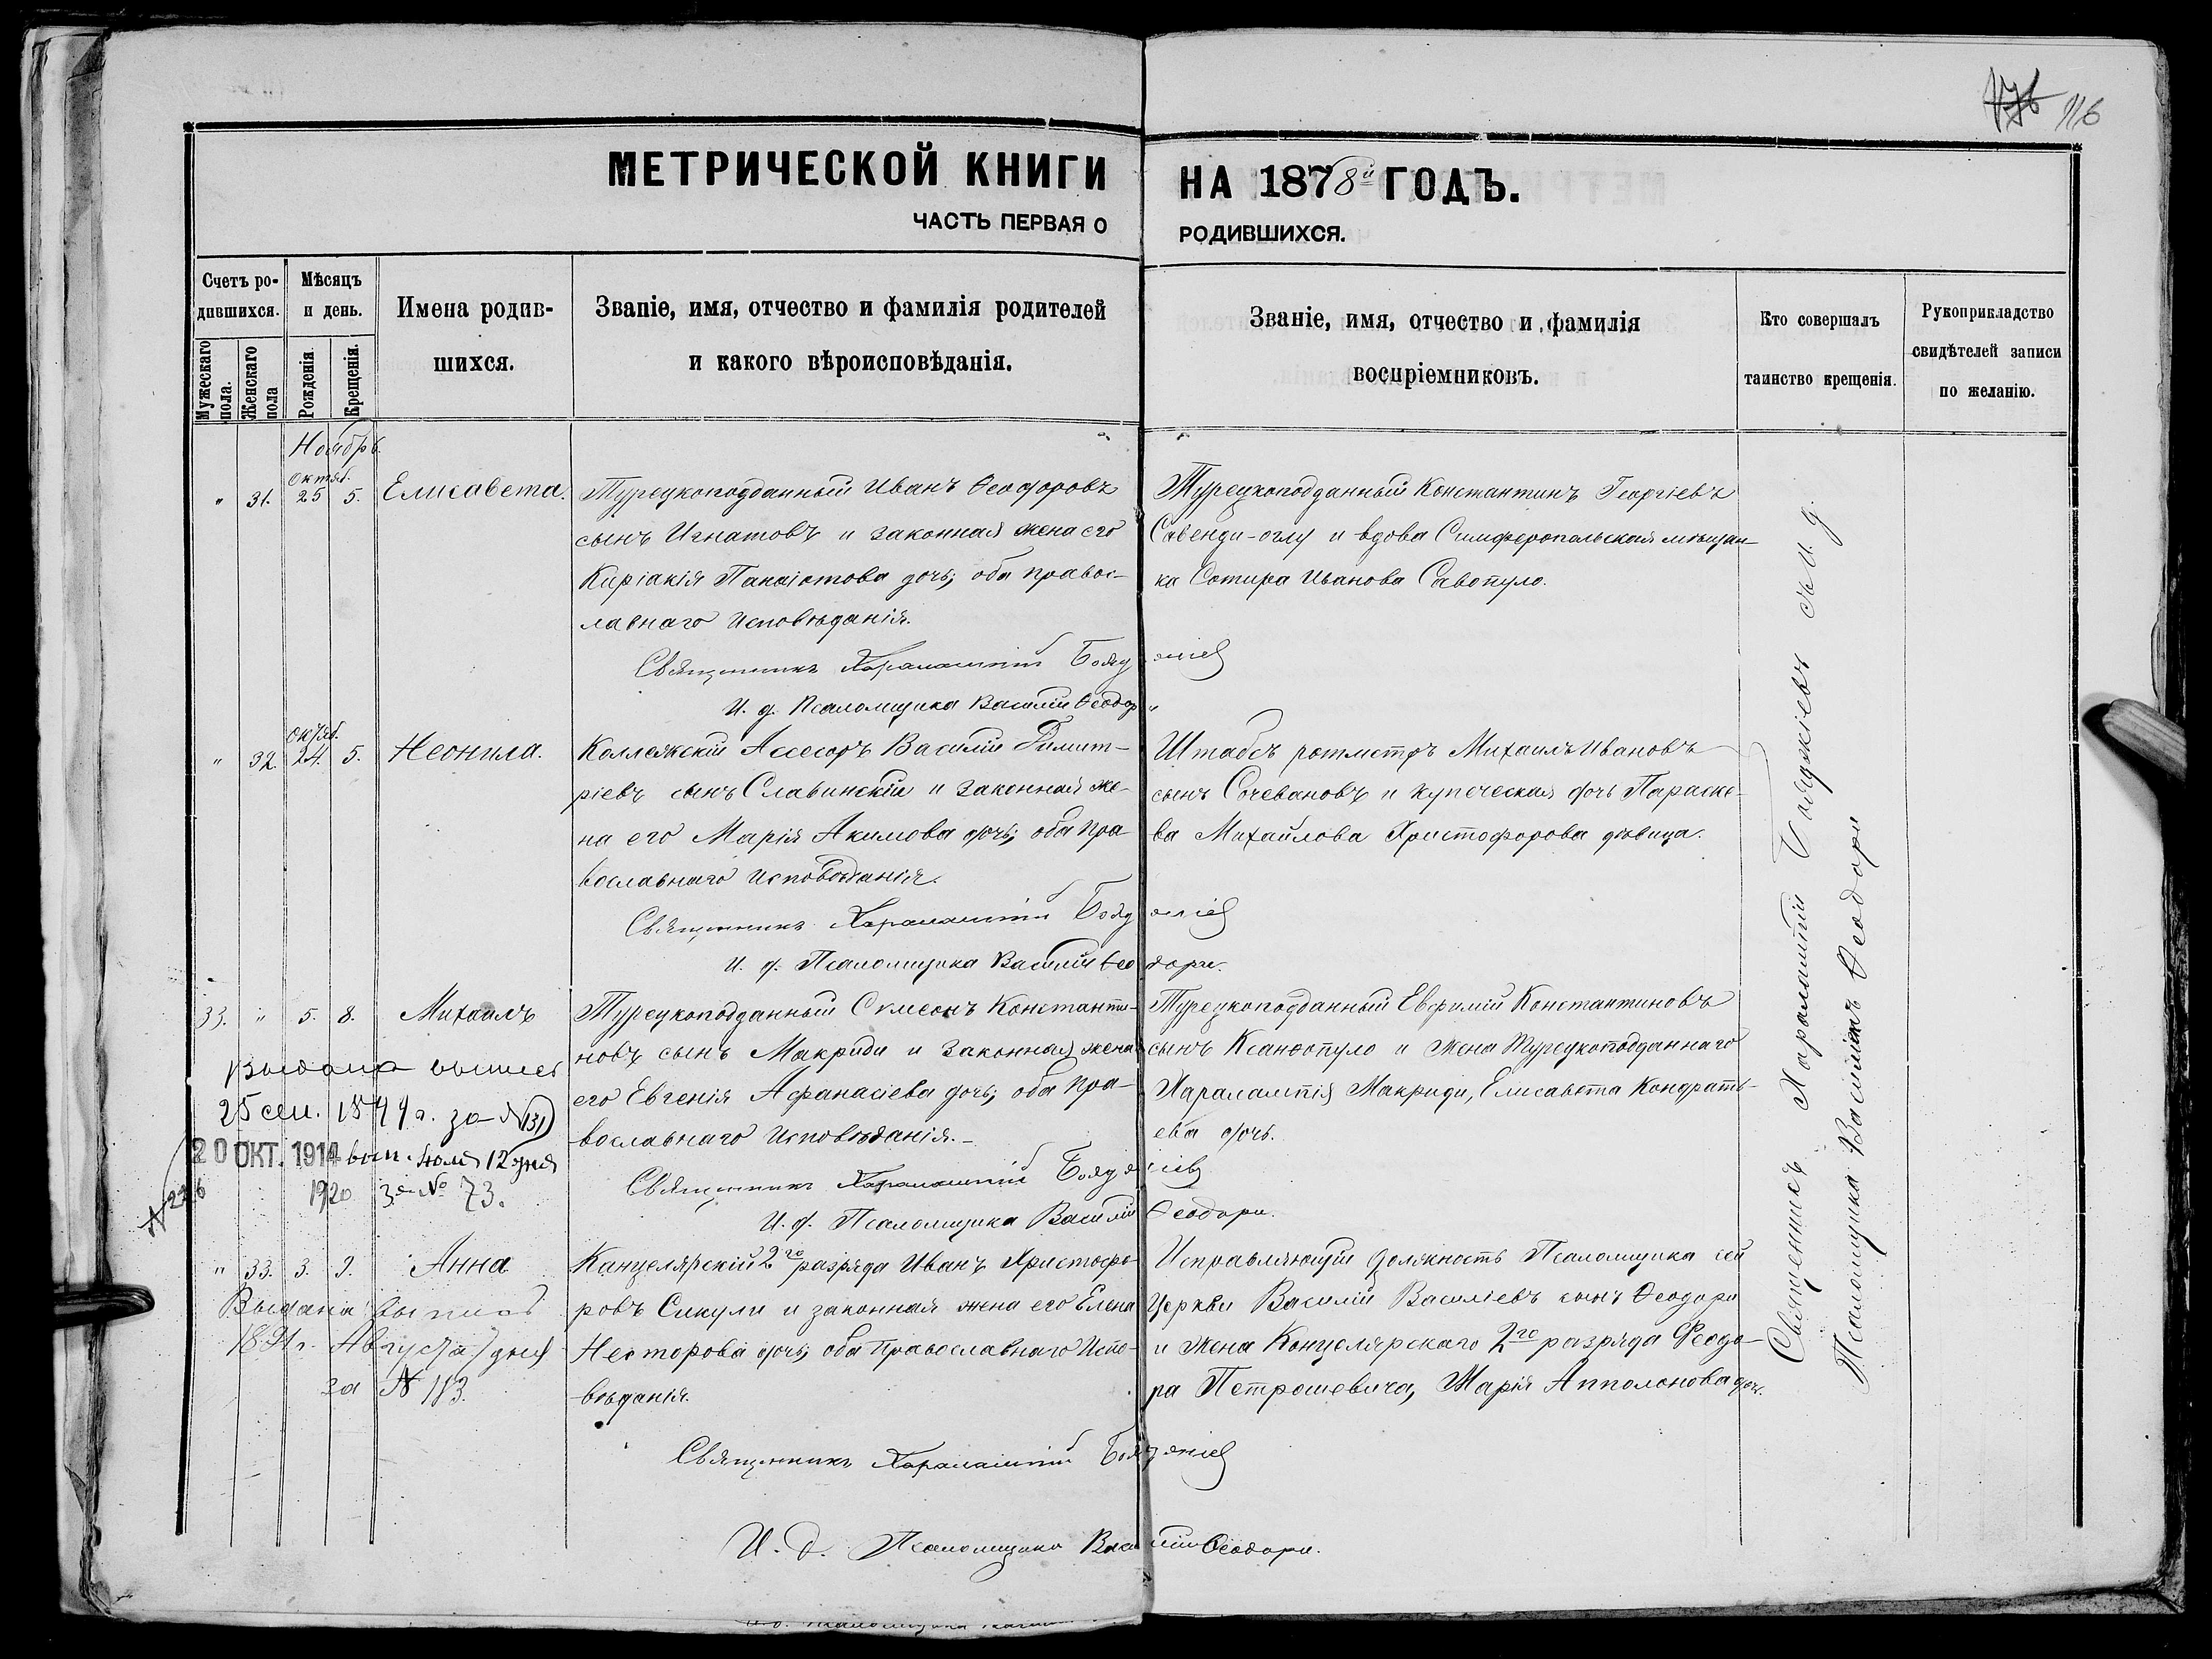 116
МЕТРИЧЕСКОЙ КНИГИ НА 1878й ГОДЪ.
ЧАСТЬ ПЕРВАЯ О РОДИВШИХСЯ.
Счетъ родившихся.
Мужескаго пола.
Женскаго пола
Мѣсяцъ и день.
Рожденія
Крещенія.
Имена родившихся.
Званіе, имя, отчество и фамилія родителей
и какого вѣроисповѣданія.
Званіе, имя, отчество и фамилія
воспріемниковъ.
Кто совершалъ
таинство крещенія.
Рукоприкладство
свидѣтелей записи
по желанію.
Ноябрь
Октяб.
" 31. 25 5. Елисавета.
Турецкоподданный Иванъ Ѳеодоровъ
сынъ Игнатовъ и законная жена его
Киріакія Панаіотова дочь; оба правос-
лавнаго исповѣданія.
Турецкоподданный Константинъ Георгіевъ
Савенди-оглу и вдова Симферопольская мѣщан-
ка Сотира Иванова Савопуло.
Священникъ Харалампій
И. д. Псаломщика Василій Ѳеодор
Октяб.
" 32. 24. 5. Неонила.
Коллежскій Ассесоръ Василій Димит-
ріевъ сынъ Славинскій и законная же-
на его Марія Акимова дочь; оба пра-
вославнаго исповѣданія.
Штабсъ ротмистръ Михаилъ Ивановъ
сынъ Сочевановъ и купеческая дочь Параске-
ва Михайлова Христофорова дѣвица.
Священникъ Харалампій
И. д. Псаломщика Василій Ѳеодори.
33. " 5. 8. Михаилъ
Турецкоподданный Симеонъ Константи-
новъ сынъ Макриди и законная жена
его Евгенія Афанасіева дочь; оба пра-
вославнаго исповѣданія.-
Турецкоподданный Евфимій Константиновъ
сынъ Ксанѳопуло и жена Турецкоподданнаго
Харалампія Макриди, Елисавета Кондрать-
ева дочь.
Выдана
25 сен. за № 131
20 ОКТ. 1914 вып. Іюля 12 дня
№ 226
1920 за № 73.
Священникъ Харалампій
И. д. Псаломщика Василій Ѳеодори.
" 33. 3. 9. Анна
Канцелярскій 2го разряда Иванъ Христофо-
ровъ Сикули и законная жена его Елена
Несторова дочь; оба Православнаго Испо-
вѣданія.
Исправляющій должность Псаломщика сей
Церкви Василій Василіевъ сынъ Ѳеодори
и жена Канцелярскаго 2го разряда Ѳеодо-
ра Петрошевича, Марія Апполонова доч.
Выдана выпись
1891 г. Августа 7 дня
за № 113.
Священникъ Харалампій
И. д. Псаломщика Василій Ѳеодори.
Священникъ Харалампій съ и. д.
Псаломщика Василіемъ Ѳеодори